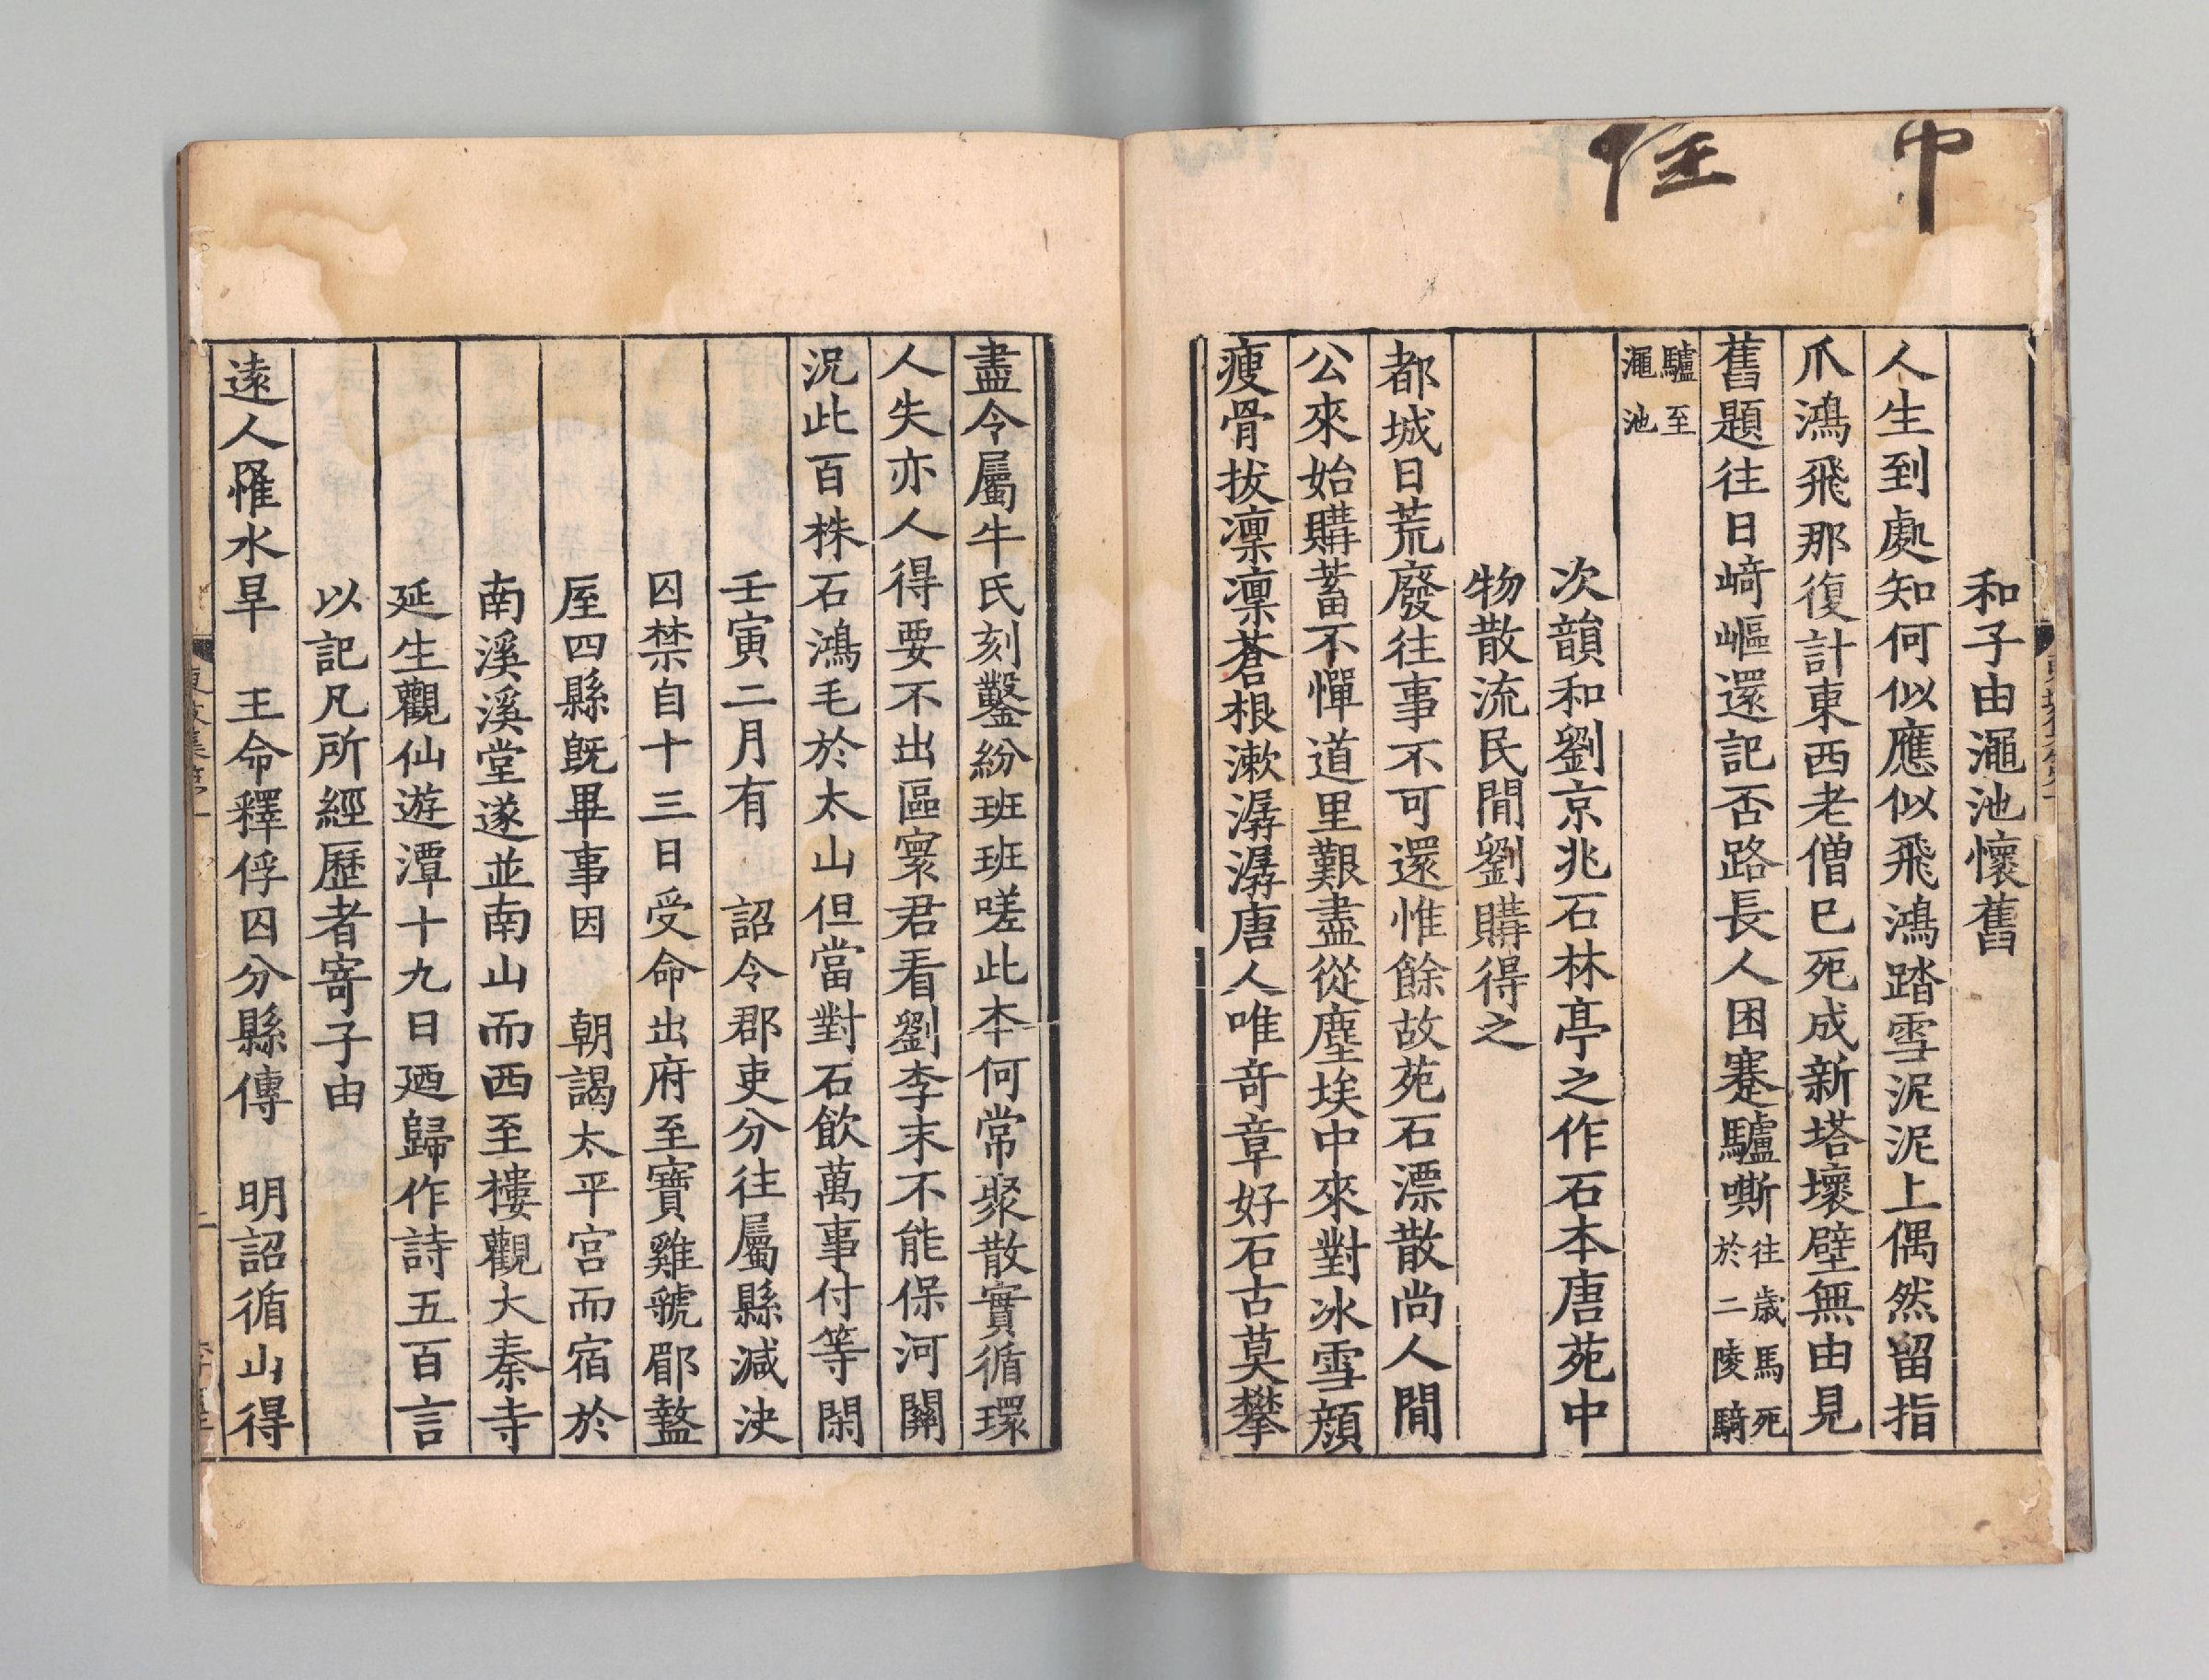 和子由澠池懷舊
人生到處知何似應似飛鴻踏雪泥泥上偶然留指
爪鴻飛那復計東西老僧已死成新塔壞壁無由見
舊題往日崎嶇還記否路長人困蹇驢嘶往歲馬死於二陵騎
驢至澠池
次韻和劉京兆石林亭之作石本唐苑中
物散流民間劉購得之
都城日荒廢往事不可還惟餘故苑石漂散尚人間
公來始購蓄不憚道里艱盡從塵埃中來對冰雪顏
瘦骨拔凛凛蒼根漱潺潺唐人唯奇章好石古莫攀
盡令屬牛氏刻鑿紛班班嗟此本何常聚散實循環
人失亦人得要不出區寰君看劉李末不能保河關
況此百株石鴻毛於太山但當對石飲萬事付等閑
壬寅二月有 詔令郡吏分往屬縣減決
囚禁自十三日受命出府至寶雞虢郿盩
厔四縣旣畢事因 朝謁太平宮而宿於
南溪溪堂遂並南山而西至樓觀大秦寺
延生觀仙遊潭十九日廼歸作詩五百言
以記凡所經歷者寄子由
遠人罹水旱 王命釋俘囚分縣傳 明詔循山得